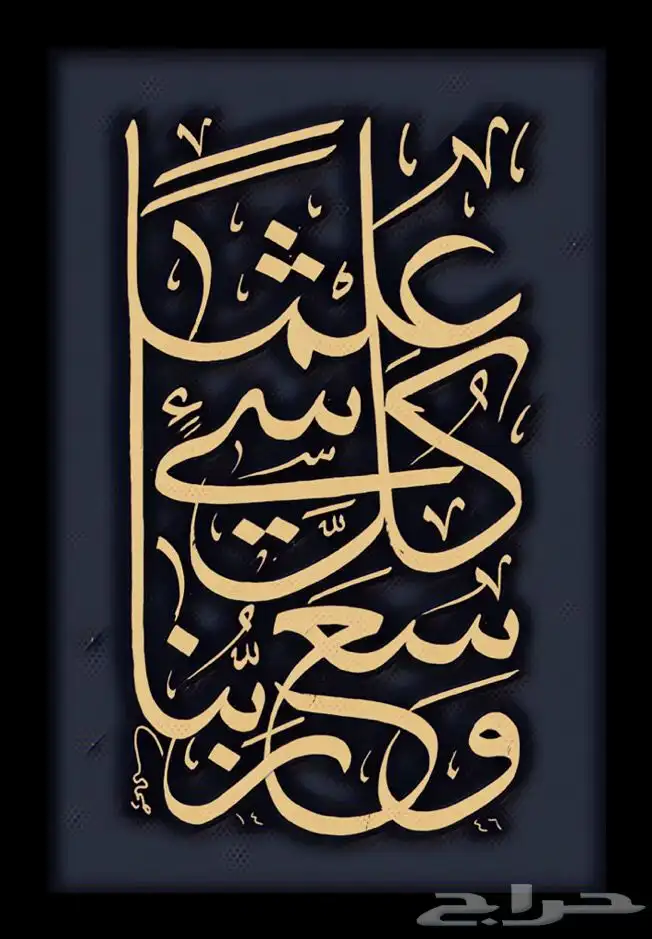 وَسِعَ رَبُّنَا
كُلَّ شَيْءٍ
عِلْمًا
١٤٤٦
حراج